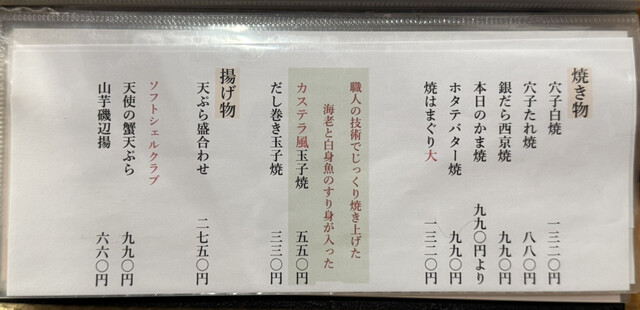 焼き物
穴子白焼 一三二〇円
穴子たれ焼 八八〇円
銀だら西京焼 九九〇円
本日のかま焼 九九〇円より
ホタテバター焼 九九〇円
焼はまぐり大 一三二〇円
職人の技術でじっくり焼き上げた
海老と白身魚のすり身が入った
カステラ風玉子焼 五五〇円
だし巻き玉子焼 三三〇円
揚げ物
天ぷら盛合わせ 二七五〇円
ソフトシェルクラブ
天使の蟹天ぷら 九九〇円
山芋磯辺揚 六六〇円